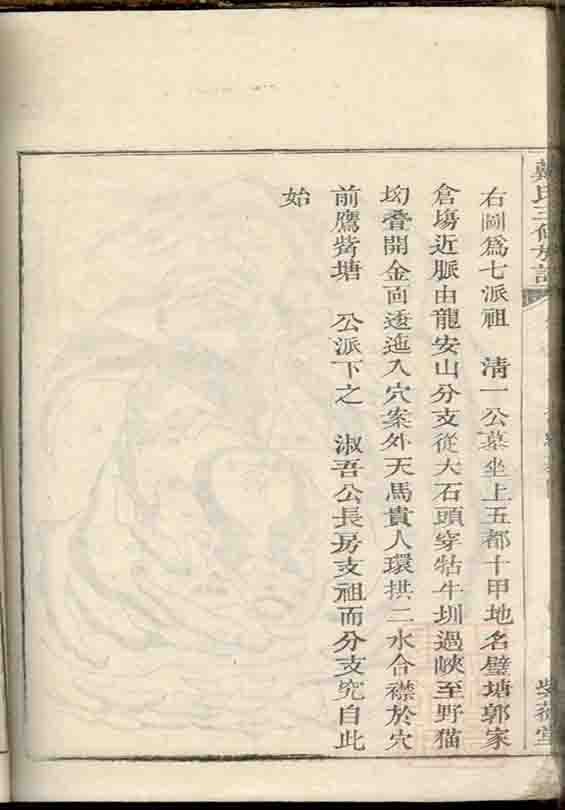 右圖爲七派祖　清一公墓坐上五都十甲地名璧塘郭家
倉塲近脈由龍安山分支從大石頭穿牯牛圳過峽至野猫
坳叠開金面逶迤入穴案外天馬貴人環拱二水合襟於穴
前鷹觜塘　公派下之　淑吾公長房支祖而分支究自此
始